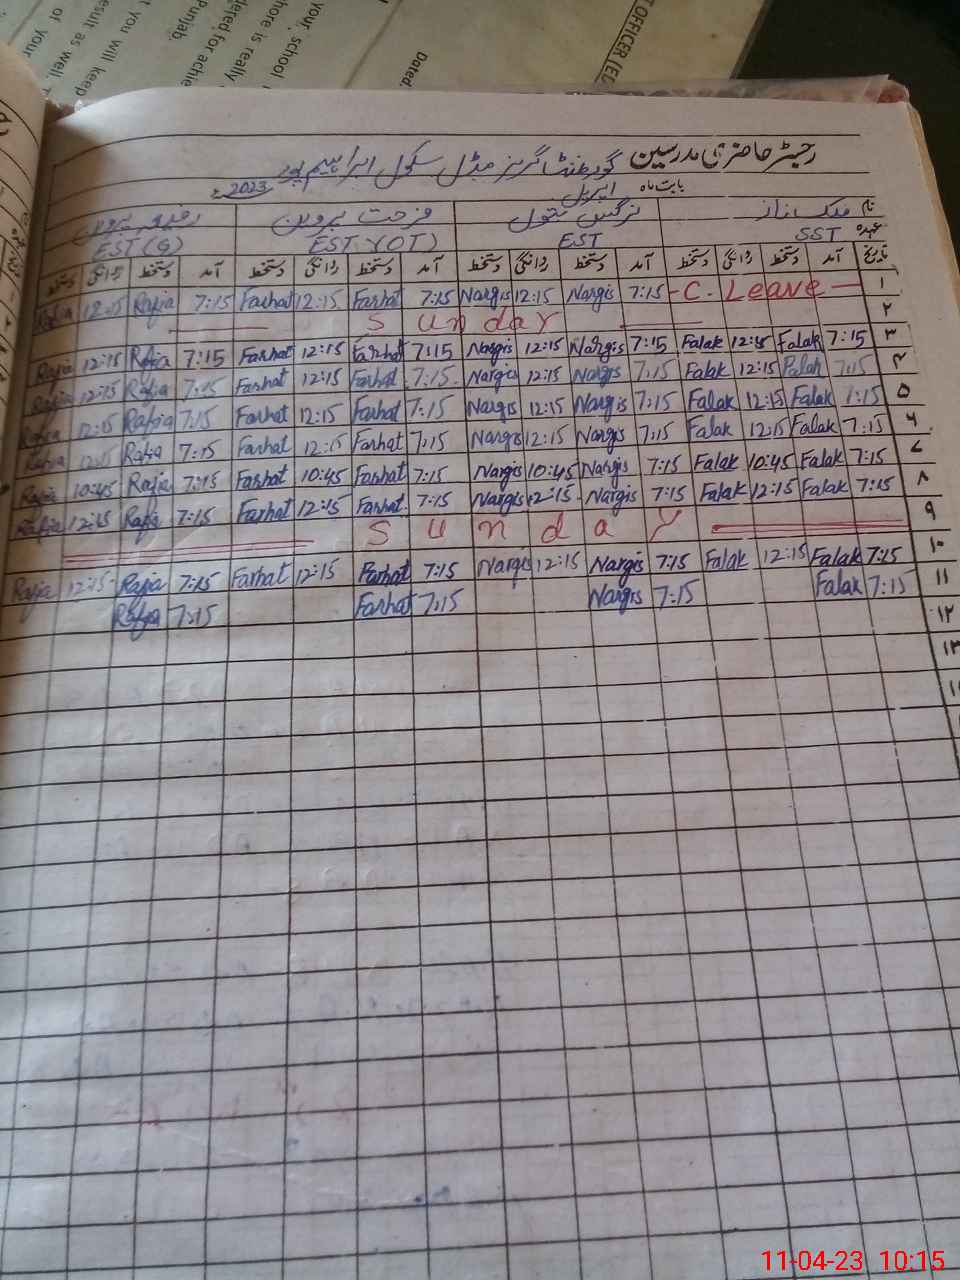 رجسٹر حاضری مدرسین گورنمنٹ گرلز مڈل سکول ابراہیم پور
بابت ماہ اپریل 2023ء
نام فلک ناز نرگس بتول فرحت پروین رفیعہ پروین
عہدہ SST EST EST (OT) EST (G)
تاریخ آمد دستخط روانگی دستخط آمد دستخط روانگی دستخط آمد دستخط روانگی دستخط آمد دستخط روانگی دستخط
Rafia 12:15 Rafia 7:15 Farhat 12:15 Farhat 7:15 Nargis 12:15 Nargis 7:15 - C. Leave - ۱
Sunday ۲
Rafia 12:15 Rafia 7:15 Farhat 12:15 Farhat 7:15 Nargis 12:15 Nargis 7:15 Falak 12:15 Falak 7:15 ۳
Rafia 12:15 Rafia 7:15 Farhat 12:15 Farhat 7:15 Nargis 12:15 Nargis 7:15 Falak 12:15 Falak 7:15 ۴
Rafia 12:15 Rafia 7:15 Farhat 12:15 Farhat 7:15 Nargis 12:15 Nargis 7:15 Falak 12:15 Falak 7:15 ۵
Rafia 12:15 Rafia 7:15 Farhat 12:15 Farhat 7:15 Nargis 12:15 Nargis 7:15 Falak 12:15 Falak 7:15 ۶
Rafia 10:45 Rafia 7:15 Farhat 10:45 Farhat 7:15 Nargis 10:45 Nargis 7:15 Falak 10:45 Falak 7:15 ۷
Rafia 12:15 Rafia 7:15 Farhat 12:15 Farhat 7:15 Nargis 12:15 Nargis 7:15 Falak 12:15 Falak 7:15 ۸
Sunday ۹
Rafia 12:15 Rafia 7:15 Farhat 12:15 Farhat 7:15 Nargis 12:15 Nargis 7:15 Falak 12:15 Falak 7:15 ۱۰
Rafia 7:15 Farhat 7:15 Nargis 7:15 Falak 7:15 ۱۱
۱۲
۱۳
T OFFICER (E
Dated.
your, school
hore is really
dered for achie
Punjab.
t you will keep
esult as well.
of your
of
11-04-23 10:15